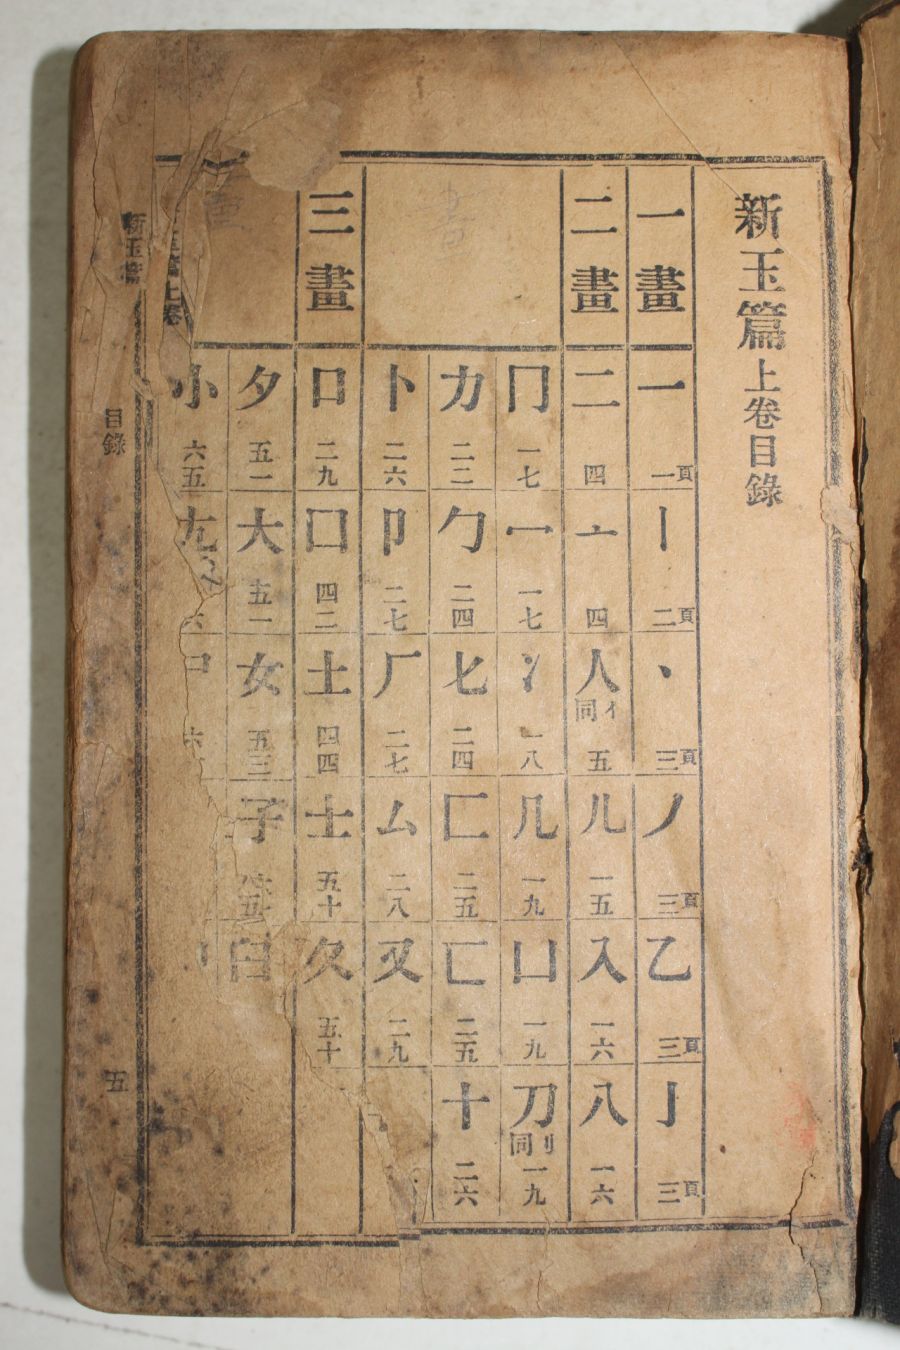 新玉篇上卷目錄
一畫
一 一頁
丨 二頁
丶 三頁
丿 三頁
乙 三頁
亅 三頁
二畫
二 四
亠 四
人 亻同 五
儿 一五
入 一六
八 一六
冂 一七
冖 一七
冫 一八
几 一九
凵 一九
刀 刂同 一九
力 二二
勹 二四
匕 二四
匚 二五
匸 二五
十 二六
卜 二六
卩 二七
厂 二七
厶 二八
又 二九
三畫
口 二九
囗 四二
土 四四
士 五十
夂 五十
夕 五一
大 五一
女 五三
子
小 六五
尢
篇上卷
新玉篇
目錄
五